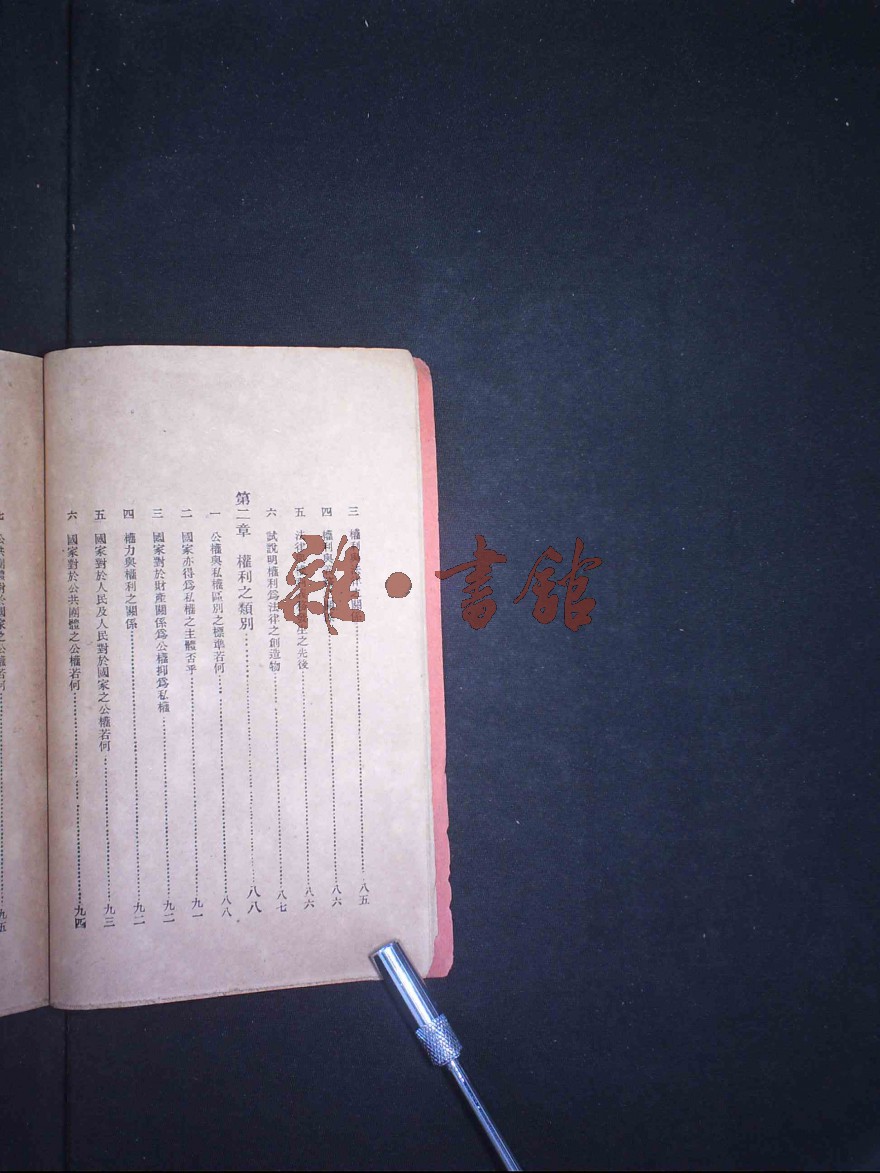 三 權利……八五
四 權利與……八六
五 法律……生之先後……八六
六 試說明權利爲法律之創造物……八七
第二章 權利之類別……八八
一 公權與私權區別之標準若何……八八
二 國家亦得爲私權之主體否乎……九一
三 國家對於財產關係爲公權抑爲私權……九二
四 權力與權利之關係……九二
五 國家對於人民及人民對於國家之公權若何……九三
六 國家對於公共團體之公權若何……九四
七 公共團體對於國家之公權若何……九五
雜·書館